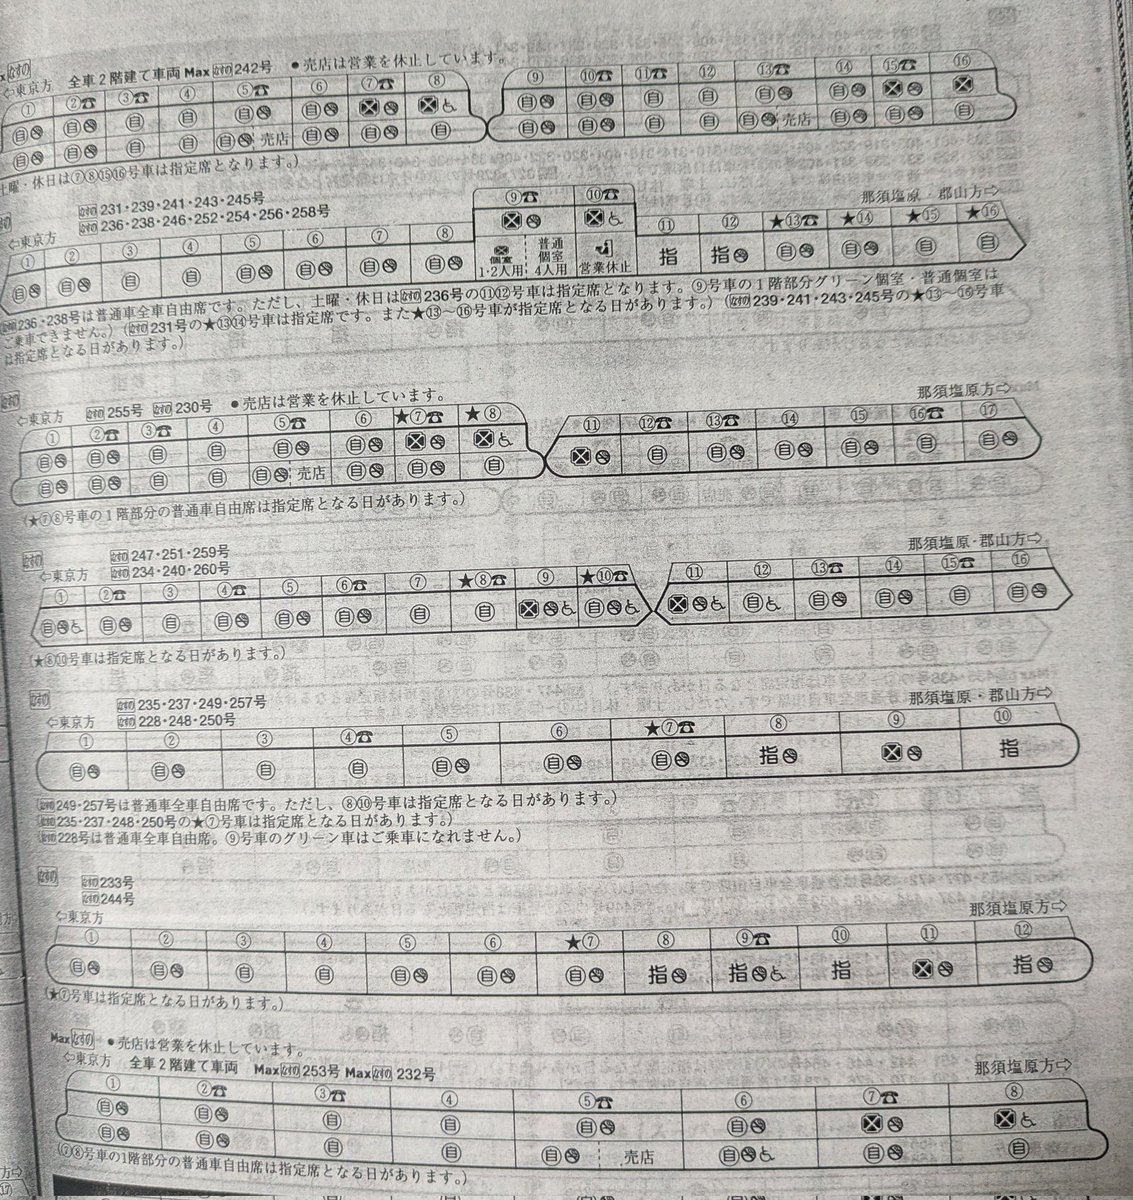 全車2階建て車両 Max なすの 242号 ●売店は営業を休止しています。
⇦東京方
① ②☎ ③☎ ④ ⑤☎ ⑥ ⑦☎ ⑧ ⑨ ⑩☎ ⑪☎ ⑫ ⑬☎ ⑭ ⑮☎ ⑯
自 自 自 自 自 自 自 自 自 自 自 自
自 自 自 自 自 売店 自 自 自 自 自 自 自 自 売店 自 自 自
土曜・休日は⑦⑧⑮⑯号車は指定席となります。)
なすの 231・239・241・243・245号
なすの 236・238・246・252・254・256・258号
⇦東京方 那須塩原・郡山方⇨
① ② ③ ④ ⑤ ⑥ ⑦ ⑧ ⑨☎ ⑩☎ ⑪ ⑫ ★⑬☎ ★⑭ ★⑮ ★⑯
自 自 自 自 自 自 自 自 指 指 自 自 自 自
個室 1・2人用 普通個室 4人用 営業休止
なすの 236・238号は普通車全車自由席です。ただし、土曜・休日は なすの 236号の⑪⑫号車は指定席となります。⑨号車の1階部分グリーン個室・普通個室は
ご乗車できません。) (なすの 231号の★⑬⑭号車は指定席です。また★⑬〜⑯号車が指定席となる日があります。) (なすの 239・241・243・245号の★⑬〜⑯号車
は指定席となる日があります。)
なすの
⇦東京方 なすの 255号 なすの 230号 ●売店は営業を休止しています。 那須塩原方⇨
① ②☎ ③☎ ④ ⑤☎ ⑥ ★⑦☎ ★⑧ ⑪ ⑫☎ ⑬☎ ⑭ ⑮ ⑯☎ ⑰
自 自 自 自 自 自 自 自 自 自 自 自
自 自 自 自 自 売店 自 自 自
(★⑦⑧号車の1階部分の普通車自由席は指定席となる日があります。)
なすの
なすの 247・251・259号
⇦東京方 なすの 234・240・260号 那須塩原・郡山方⇨
① ②☎ ③ ④☎ ⑤ ⑥☎ ⑦ ★⑧☎ ⑨ ★⑩☎ ⑪ ⑫ ⑬☎ ⑭ ⑮☎ ⑯
自 自 自 自 自 自 自 自 自 自 自 自 自 自
(★⑧⑩号車は指定席となる日があります。)
なすの
なすの 235・237・249・257号
⇦東京方 なすの 228・248・250号 那須塩原・郡山方⇨
① ② ③ ④☎ ⑤ ⑥ ★⑦☎ ⑧ ⑨ ⑩
自 自 自 自 自 自 自 指 指
(なすの 249・257号は普通車全車自由席です。ただし、⑧⑩号車は指定席となる日があります。)
(なすの 235・237・248・250号の★⑦号車は指定席となる日があります。)
(なすの 228号は普通車全車自由席。⑨号車のグリーン車はご乗車になれません。)
なすの
なすの 233号
なすの 244号
⇦東京方 那須塩原方⇨
① ② ③ ④ ⑤ ⑥ ★⑦ ⑧ ⑨☎ ⑩ ⑪ ⑫
自 自 自 自 自 自 自 指 指 指 指
(★⑦号車は指定席となる日があります。)
Max なすの ●売店は営業を休止しています。
⇦東京方 全車2階建て車両 Max なすの 253号 Max なすの 232号 那須塩原方⇨
① ②☎ ③☎ ④ ⑤☎ ⑥ ⑦☎ ⑧
自 自 自 自 自 自
自 自 自 自 自 売店 自 自 自
(⑦⑧号車の1階部分の普通車自由席は指定席となる日があります。)